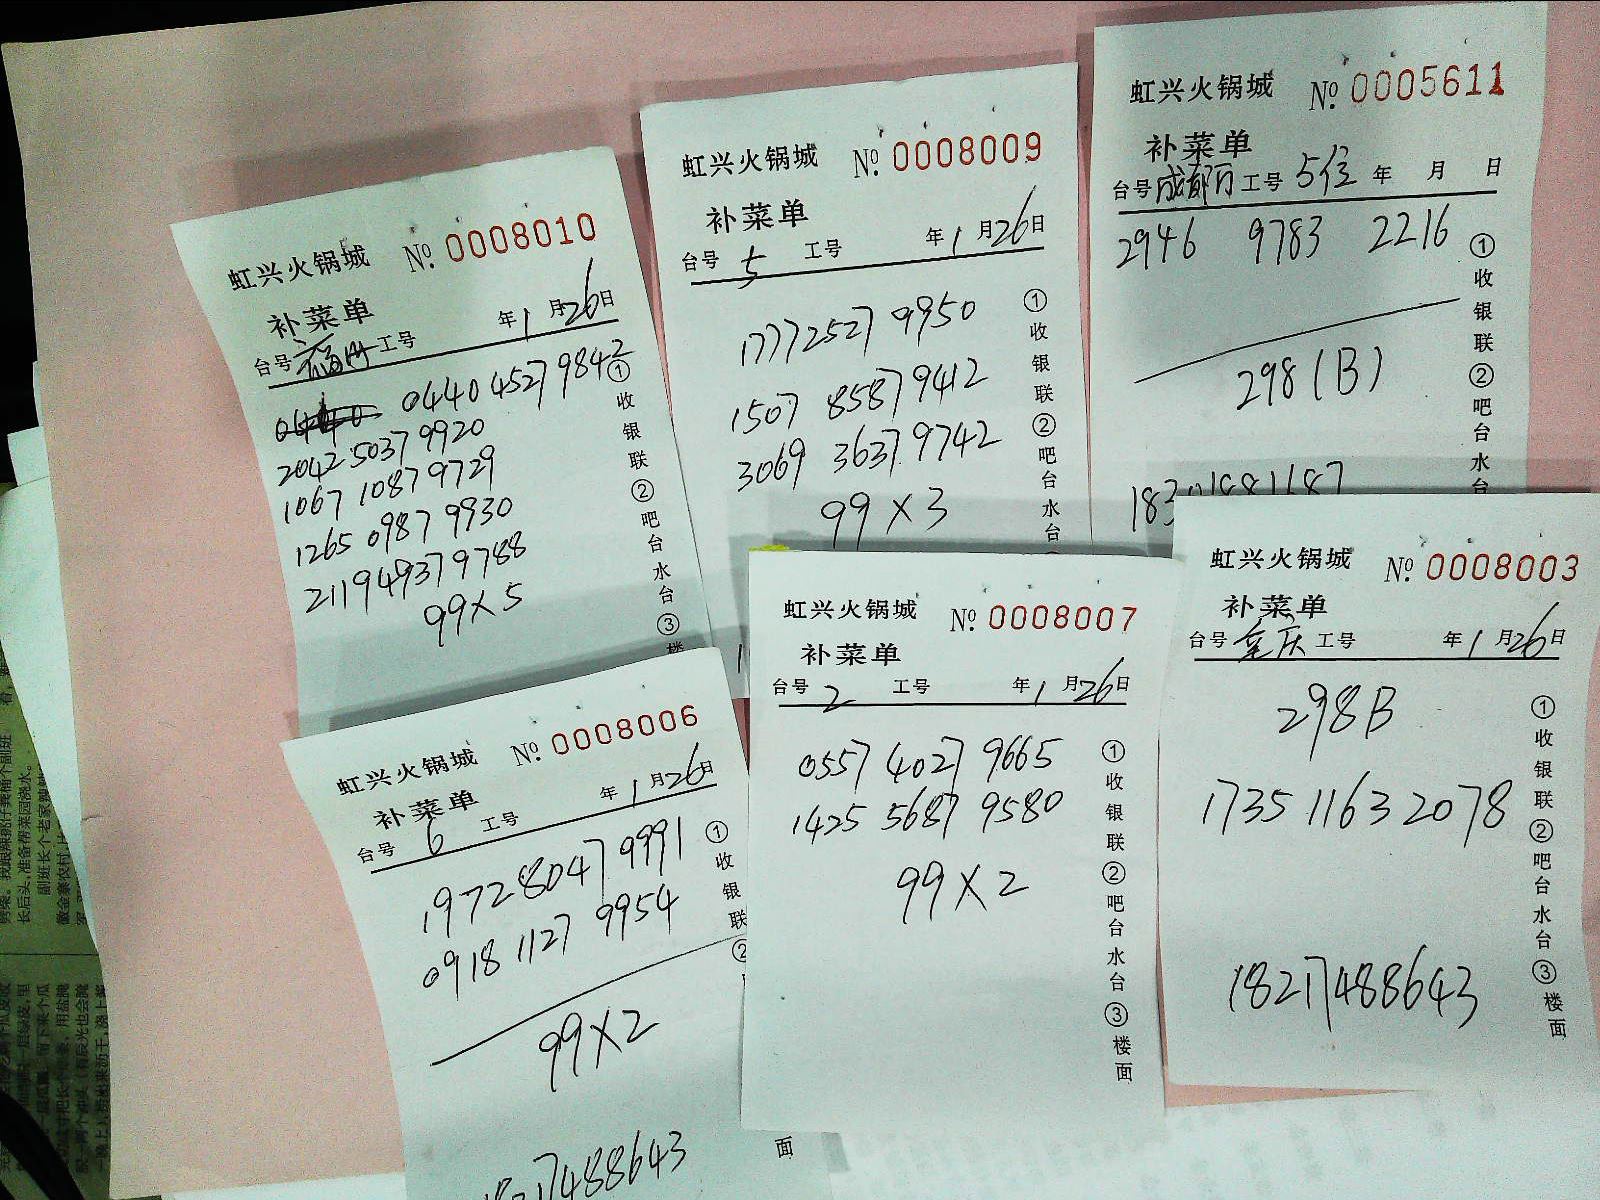 虹兴火锅城 № 0008010
补菜单
年1月26日
台号 工号
0440 4527 9842
2042 5037 9920
1067 1087 9729
1265 0987 9930
2119 4937 9788
99×5
①收银联②吧台水台③楼
虹兴火锅城 № 0008009
补菜单
台号 5 工号 年1月26日
1777 2527 9950
1507 8587 9412
3069 3637 9742
99×3
①收银联②吧台水台
虹兴火锅城 № 0005611
补菜单
台号成都厅工号 5位 年 月 日
2946 9783 2216
298(B)
①收银联②吧台水台
虹兴火锅城 № 0008006
补菜单
年1月26日
台号 6 工号
1972 8047 9991
0918 1127 9954
99×2
18217488643
①收银联②
面
虹兴火锅城 № 0008007
补菜单
台号 2 工号 年1月26日
0557 4027 9665
1425 5687 9580
99×2
①收银联②吧台水台③楼面
虹兴火锅城 № 0008003
补菜单
台号重庆工号 年1月26日
298B
1735 1163 2078
18217488643
①收银联②吧台水台③楼面